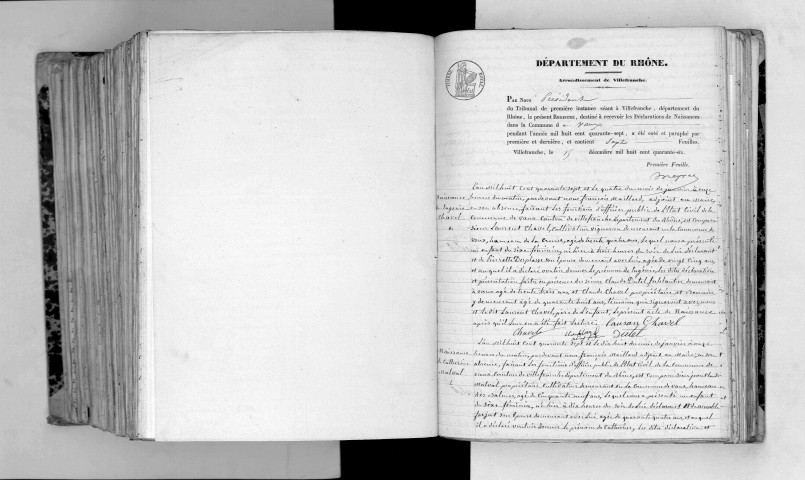 DÉPARTEMENT DU RHÔNE.
Arrondissement de Villefranche.
Par Nous Président
du Tribunal de première instance séant à Villefranche, département du
Rhône, le présent Registre, destiné à recevoir les Déclarations de Naissances
dans la Commune d e Vaux
pendant l'année mil huit cent quarante-sept, a été coté et paraphé par
première et dernière, et contient Sept Feuilles.
Villefranche, le 15 décembre mil huit cent quarante-six.
Première Feuille.
Naissance
Chavel
L'an mil huit cent quarante sept et le quatre du mois de janvier à onze
heures du matin, par devant nous françois Maillard, adjoint au Maire
en son absence, faisant les fonctions d'officier public de l'état Civil de la
Commune de vaux Canton de villefranche département du Rhône, est comparu
sieur Laurent Chavel, Cultivateur vigneron demeurant en la Commune de
vaux, hameau de la agé de trente quatre ans, lequel nous a présenté
un enfant du sexe féminin, né hier à trois heures du soir de lui déclarant
et de Pierrette Desplace son épouse demeurant avec lui, agée de vingt cinq ans
et auquel il a déclaré vouloir donner le prénom de les dites déclaration
et présentation faites en présence des sieurs Claude Dutel demeurant
à vaux agé de trente trois ans, et Claude Chavel propriétaire et
y demeurant agé de quarante huit ans, témoins qui signeront avec nous
et le dit Laurent Chavel, père de l'enfant, le présent acte de Naissance
après qu'il leur en a été fait lecture. Lauran Chavel
Chavel Dutel
Naissance
de Catherine
L'an mil huit cent quarante sept et le dix huit du mois de janvier à onze
heures du matin, par devant nous françois Maillard adjoint au Maire, en son
absence, faisant les fonctions d'officier public de l'état Civil de la Commune de
vaux Canton de villefranche département du Rhône, est Comparu
propriétaire Cultivateur demeurant en la Commune de vaux, hameau
des agé de Cinquante neuf ans, lequel nous a présenté un enfant
du sexe féminin, né hier à dix heures du soir de lui déclarant et
son épouse demeurant avec lui, agée de quarante quatre ans et auquel
il a déclaré vouloir donner le prénom de Catherine, les dites déclaration et